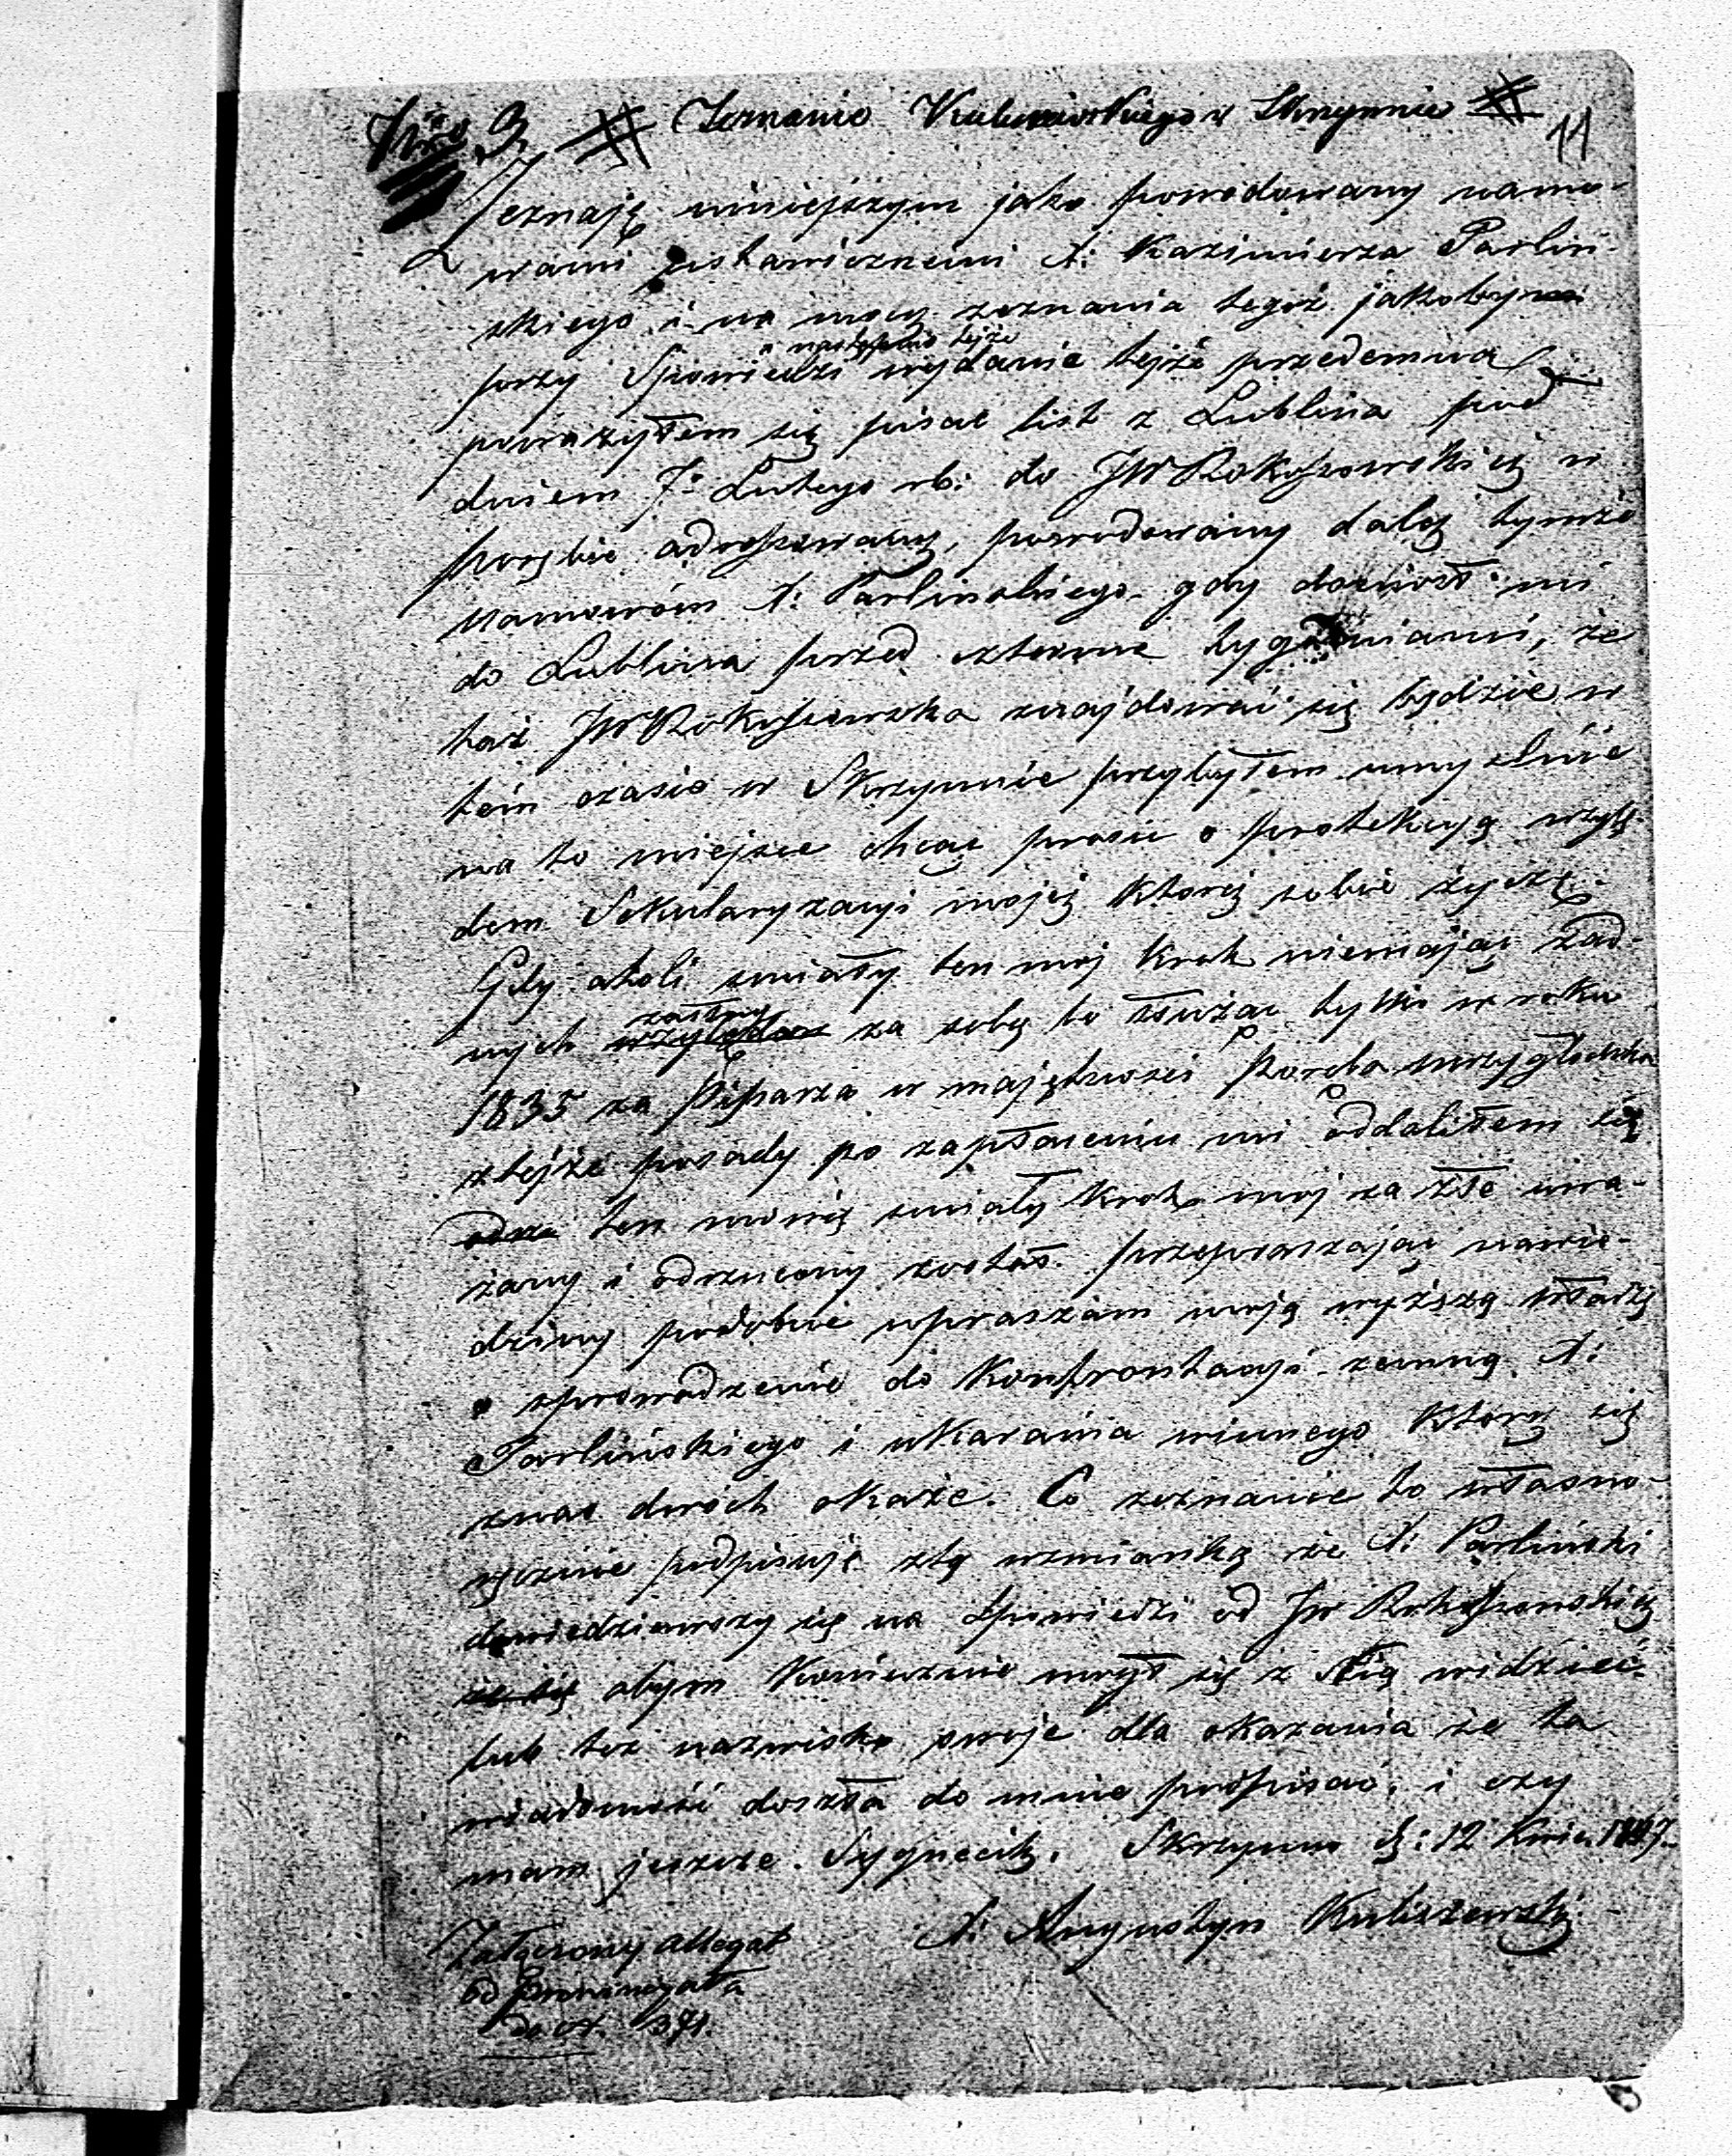 Nro 3. # Zeznanie Kuliszewskiego w Skrzynnie #
11
Zeznaję niniejszym jako powodowany namo-
wami ustawicznemi X: Kazimierza Parliń-
skiego i na mocy zeznania tegoż jakobym
następnie tejże
przy Spowiedzi wydanie tejże przedemną
poważyłem się pisać list z Lublina pod
dniem 7o Lutego rb: do JW Rokoszowskiej w
adressowany, powodowany dalej tymże
namowóm X: Parlinskiego gdy doniosł mi
do Lublina przed czterma tygodniami, że
taż JW Rokoszowska znajdować się będzie w
tém czasie w Skrzynnie przybyłem umyślnie
na to miejsce chcąc prosić o protekcyą wzglę-
dem Sekularyzacyi mojéj której sobie życzę.
Gdy atoli smiały ten mój krok niemając żad-
zasług
nych względów za sobą bo służąc tylko w roku
1835 za Pisarza w majętności Poręba mrzygłodzka
z tejże posady po zapłaceniu mi oddaliłem się
ten mówię smiały krok mój za złe uwa-
żany i odrzucony został. przepraszając
podobnie upraszam moją wyższą władzę
o sprowadzenie do Konfrontacyi zemną X:
Parlińskiego i ukarania winnego który się
z nas dwóch okaże. Co zeznanie to własno-
ręcznie podpisuję z tą wzmianką że X: Parliński
dowiedziawszy się na Spowiedzi od JW Rokoszowskiej
abym koniecznie mógł się z Nią widzieć
lub też nazwisko swoje dla okazania że ta
wiadomość doszła do mnie podpisać, i czy
mam jeszcze Sygnecik. Skrzynno d: 12 Kwie. 1847.
X: Augustyn Kuliszewski
Załączony allegat
od Prowincyała
do N. 371.